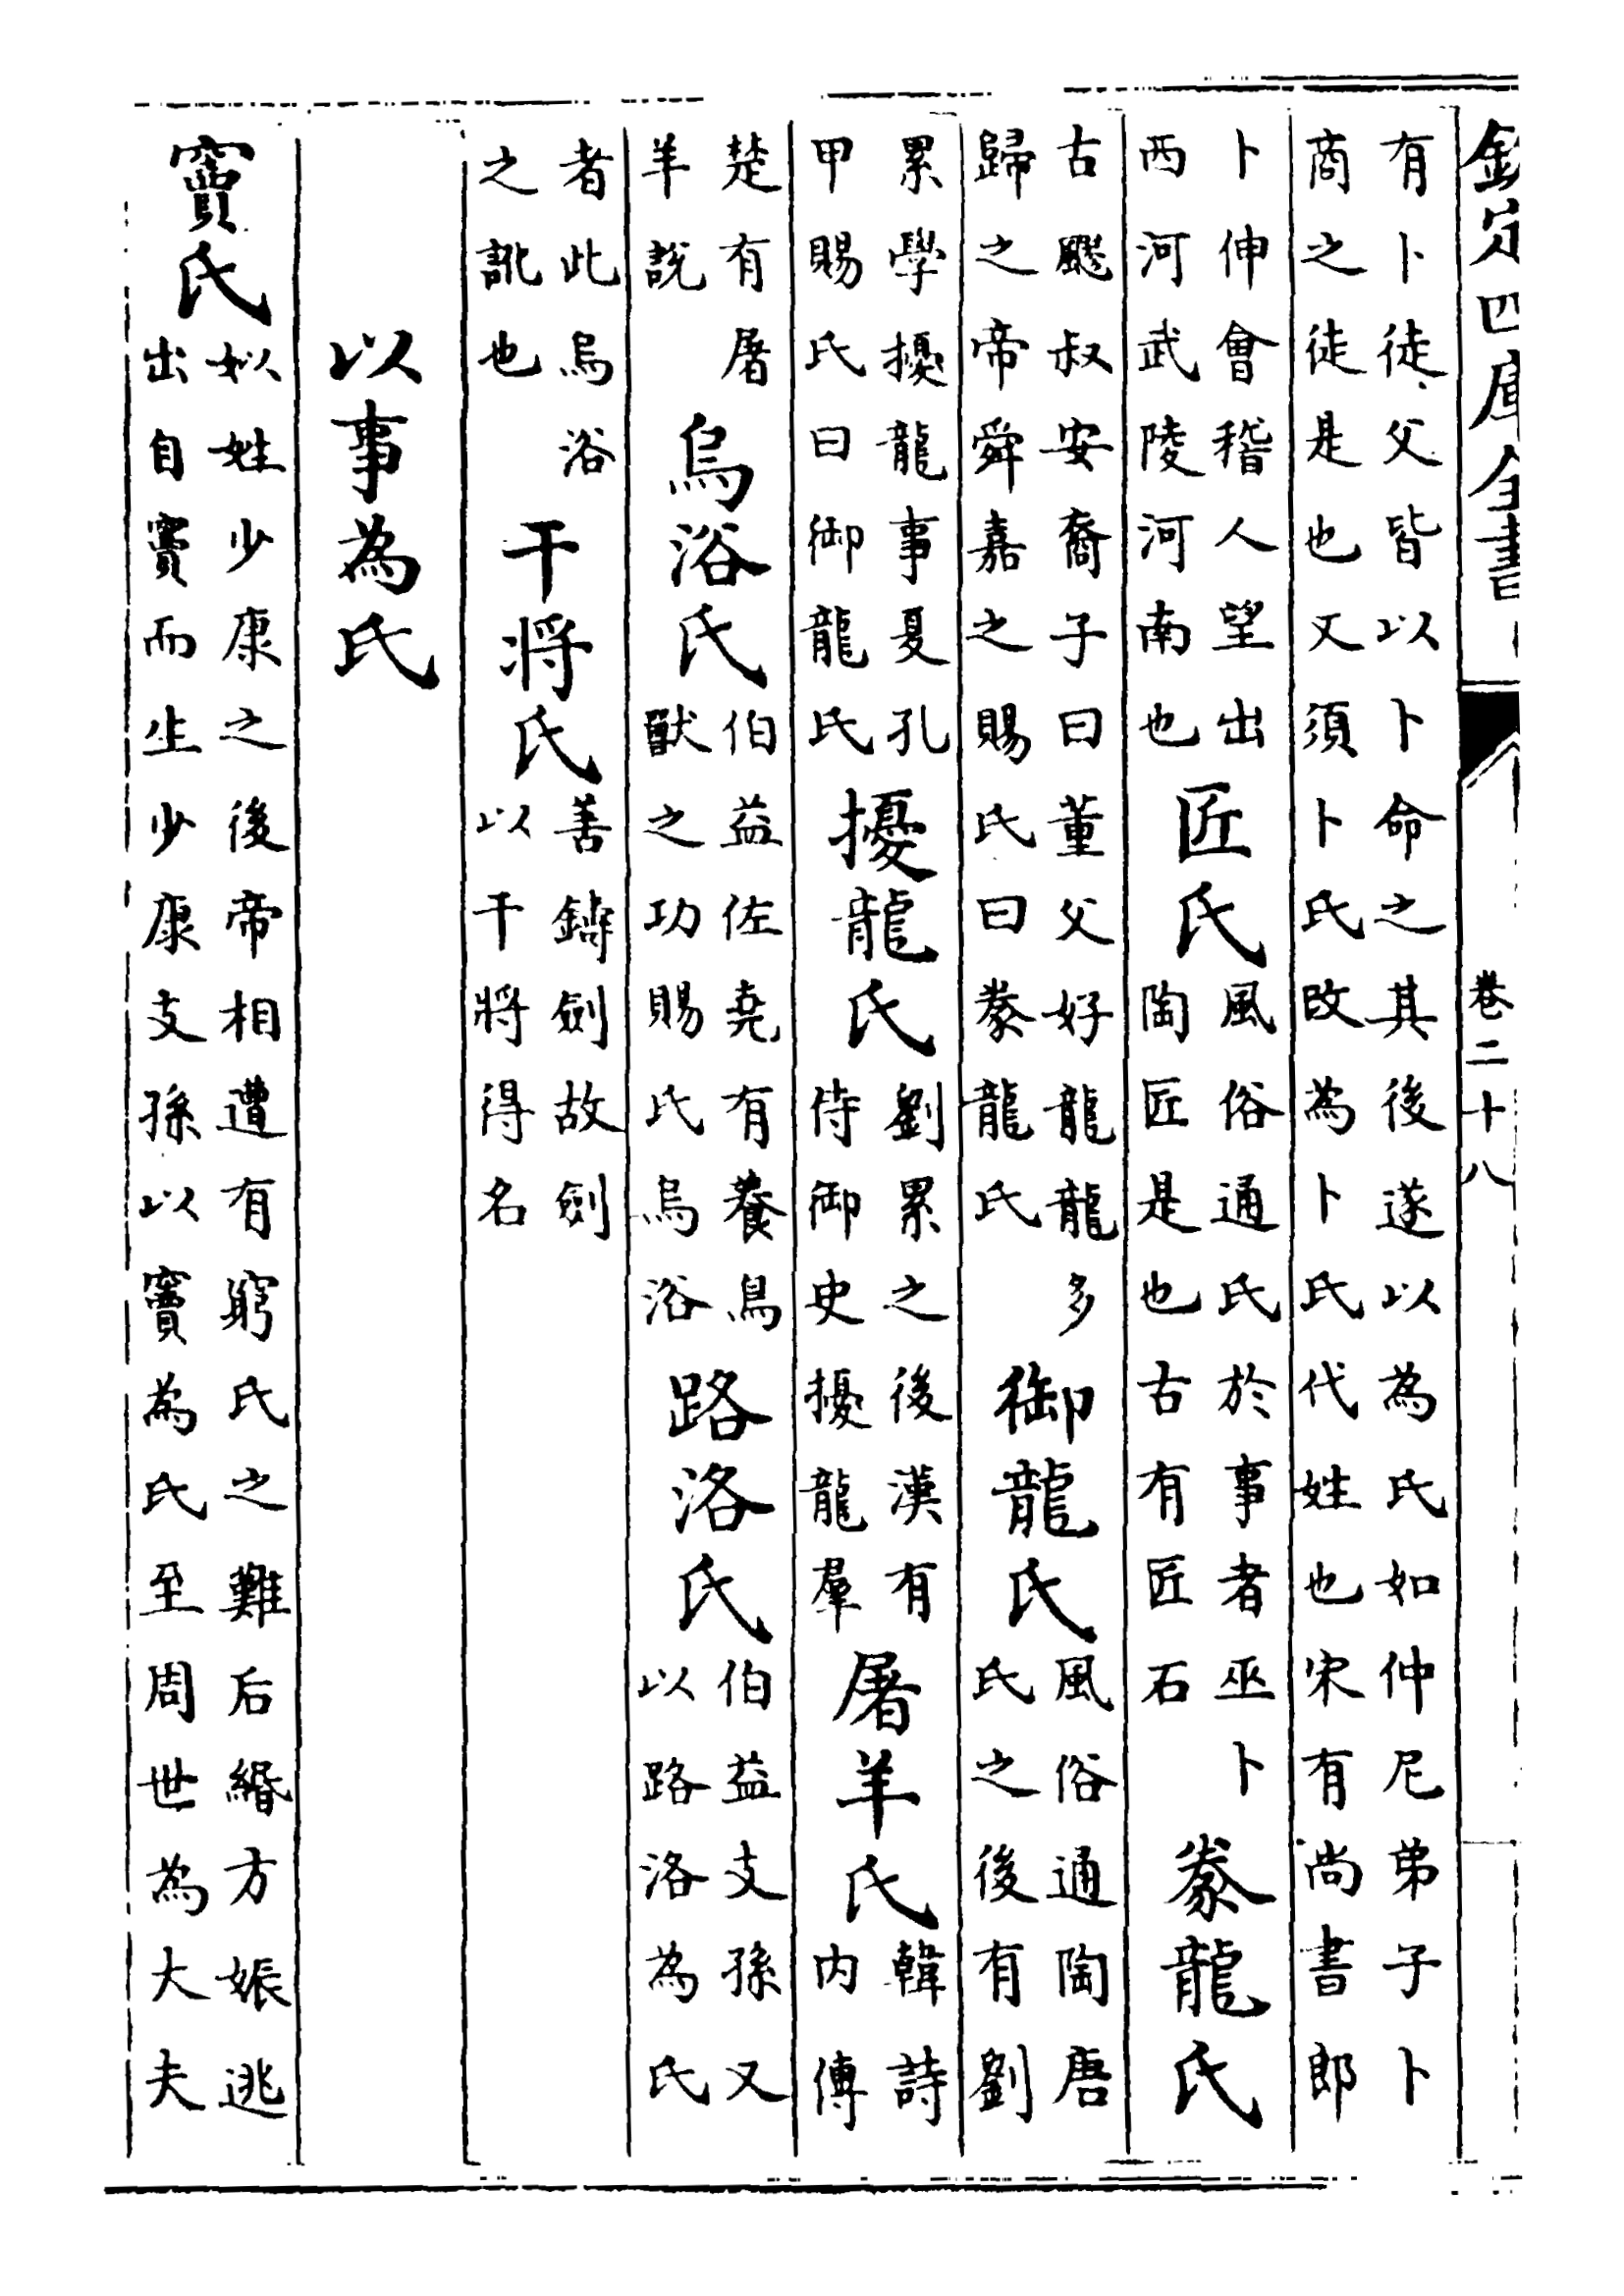 欽定四庫全書
卷二十八
有卜徒父皆以卜命之其後遂以為氏如仲尼弟子卜
商之徒是也又須卜氏改為卜氏代姓也宋有尚書郎
卜伸會稽人望出
西河武陵河南也
匠氏
風俗通氏於事者巫卜
陶匠是也古有匠石
豢龍氏
古飂叔安裔子曰董父好龍龍多
歸之帝舜嘉之賜氏曰豢龍氏
御龍氏
風俗通陶唐
氏之後有劉
累學擾龍事夏孔
甲賜氏曰御龍氏
擾龍氏
劉累之後漢有
侍御史擾龍羣
屠羊氏
韓詩
内傳
楚有屠
羊說
烏浴氏
伯益佐堯有養鳥
獸之功賜氏烏浴
路洛氏
伯益支孫又
以路洛為氏
者此烏浴
之訛也
干將氏
善鑄劍故劍
以干將得名
以事為氏
竇氏
姒姓少康之後帝相遭有窮氏之難后緡方娠逃
出自竇而生少康支孫以竇為氏至周世為大夫